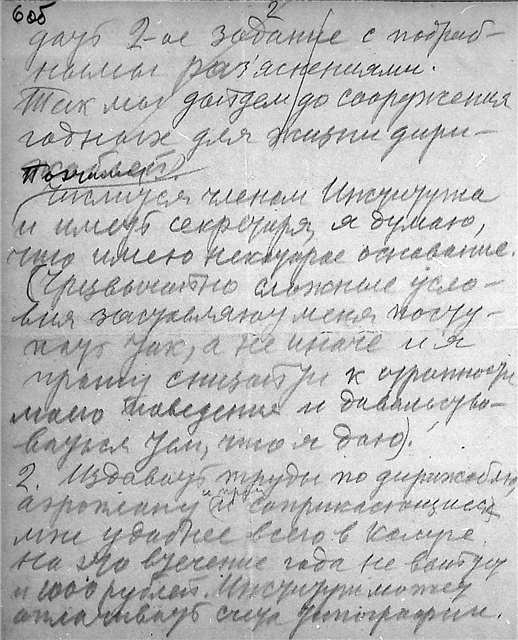 6 об
2
дать 2-ое задание с подроб-
ными раз'яснениями.
Так мы дойдем до сооружения
годных для жизни дири-
жаблей.
Почему
числиться членом Института
и иметь секретаря, я думаю,
что имею некоторое основание.
(Чрезвычайно сложные усло-
вия заставляют меня посту-
пать так, а не иначе и я
прошу снизойти к странности
моего поведения и довольство-
ваться тем, что я даю).
2. Издавать труды по дирижаблю,
аэроплану и соприкасающиеся
мне удобнее всего в Калуге.
На это в течение года не выйдет
и 1000 рублей. Институт может
оплачивать счета типографии.